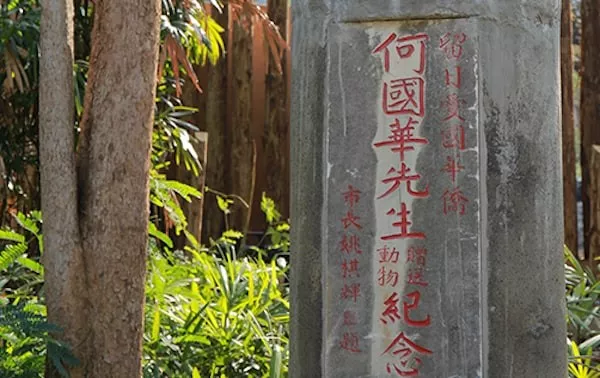 留日愛國華僑
何國華先生贈送動物紀念
市長姚棋輝題